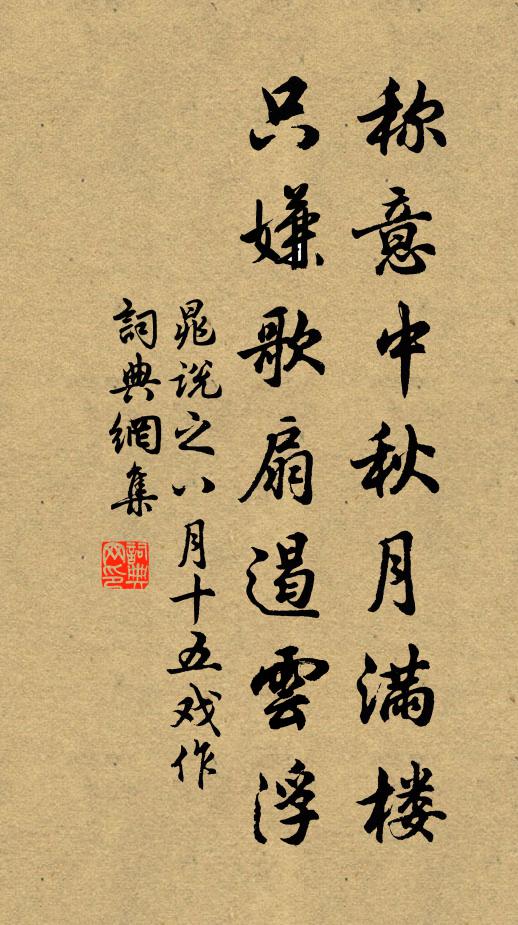 称意中秋月满楼
只嫌歌扇遏雲浮
晁说之八月十五戏作
詞典網集
詞典网印